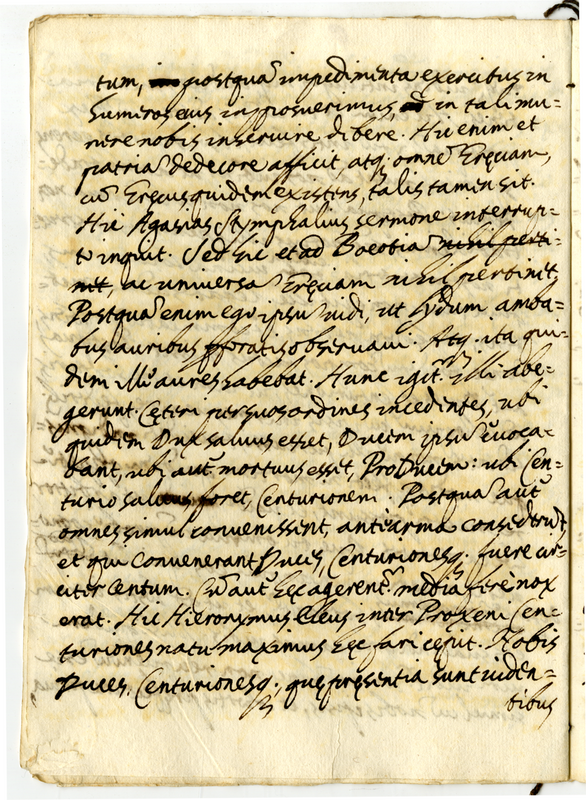 tum, postqua impedimenta exercitus in
humeros eius imposuerimus, & in tali mu=
nere nobis inseruire dibere. Hic enim et
patria dedecore afficit, atq. omne Gręciam,
cu Gręcus quidem existens, talis tamen sit.
Hic Agasias Stymphalius sermone interrup=
to inquit. Sed hic et ad Boeotia nihil perti=
net, ac uniuersa Gręciam nihil pertinet.
Postqua enim ego ipsu uidi, ut Lydum amba=
bus auribus pforatis obseruaui. Atq. ita qui=
dem illi aures habebat. Hunc igit. illi abe=
gerunt. Ceteri per suos ordines incedentes, ubi
quidem Dux saluus esset, Ducem ipsu euoca=
bant, ubi aut mortuus esset, ProDucem: ubi Cen=
turio saluus foret, Centurionem. Postqua aut
omnes simul conuenissent, ante arma consedrut,
et qui conuenerant Duces, Centurionesq. fuere cir=
citer Centum. Cu aut hęc agerent. media fere nox
erat. Hic Hieronymus Eleus inter Proxeni Cen=
turiones natu maximus hęc fari cepit. Nobis
Duces, Centurionesq; que presentia sunt uiden=
tibus